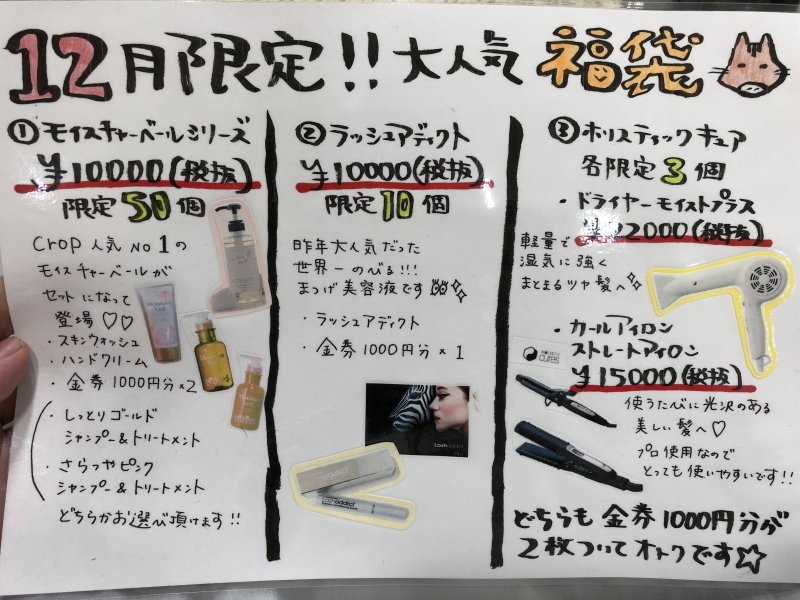 12月限定!! 大人気 福袋
① モイスチャーベールシリーズ
¥10000(税抜)
限定50個
CROP 人気 NO1の
モイスチャーベールが
セットになって
登場♡♡
・スキンウォッシュ
・ハンドクリーム
・金券1000円分×2
・しっとりゴールド
シャンプー&トリートメント
・さらつやピンク
シャンプー&トリートメント
どちらかお選び頂けます!!
② ラッシュアディクト
¥10000(税抜)
限定10個
昨年大人気だった
世界一のびる!!!
まつげ美容液です
・ラッシュアディクト
・金券1000円分×1
Lashaddict
③ ホリスティックキュア
各限定3個
・ドライヤーモイストプラス
2000(税抜)
軽量で
湿気に強く
まとまるツヤ髪へ
・カールアイロン
ストレートアイロン
¥15000(税抜)
cures
使うたびに光沢のある
美しい髪へ♡
プロ使用なので
とっても使いやすいです!!
どちらも金券1000円分が
2枚ついてオトクです☆